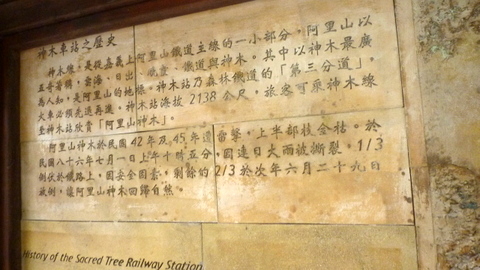 神木車站之歷史
神木線，是從嘉義上阿里山鐵道主線的一小部分，阿里山以
五奇著稱，雲海、日出、晚霞、鐵道與神木。其中以神木最廣
為人知，是阿里山的地標。神木站乃森林鐵道的「第三分道」，
火車必須先進再退，神木站海拔2138公尺，旅客可乘神木線
至神木站欣賞「阿里山神木」。
阿里山神木於民國42年及45年遭雷擊，上半部枝全枯。於
民國八十六年七月一日上午十時五分，因連日大雨被撕裂。1/3
倒伏於鐵路上，因安全因素，剩餘的2/3於次年六月二十九日
被倒，讓阿里山神木回歸自然。
History of the Sacred Tree Railway Station